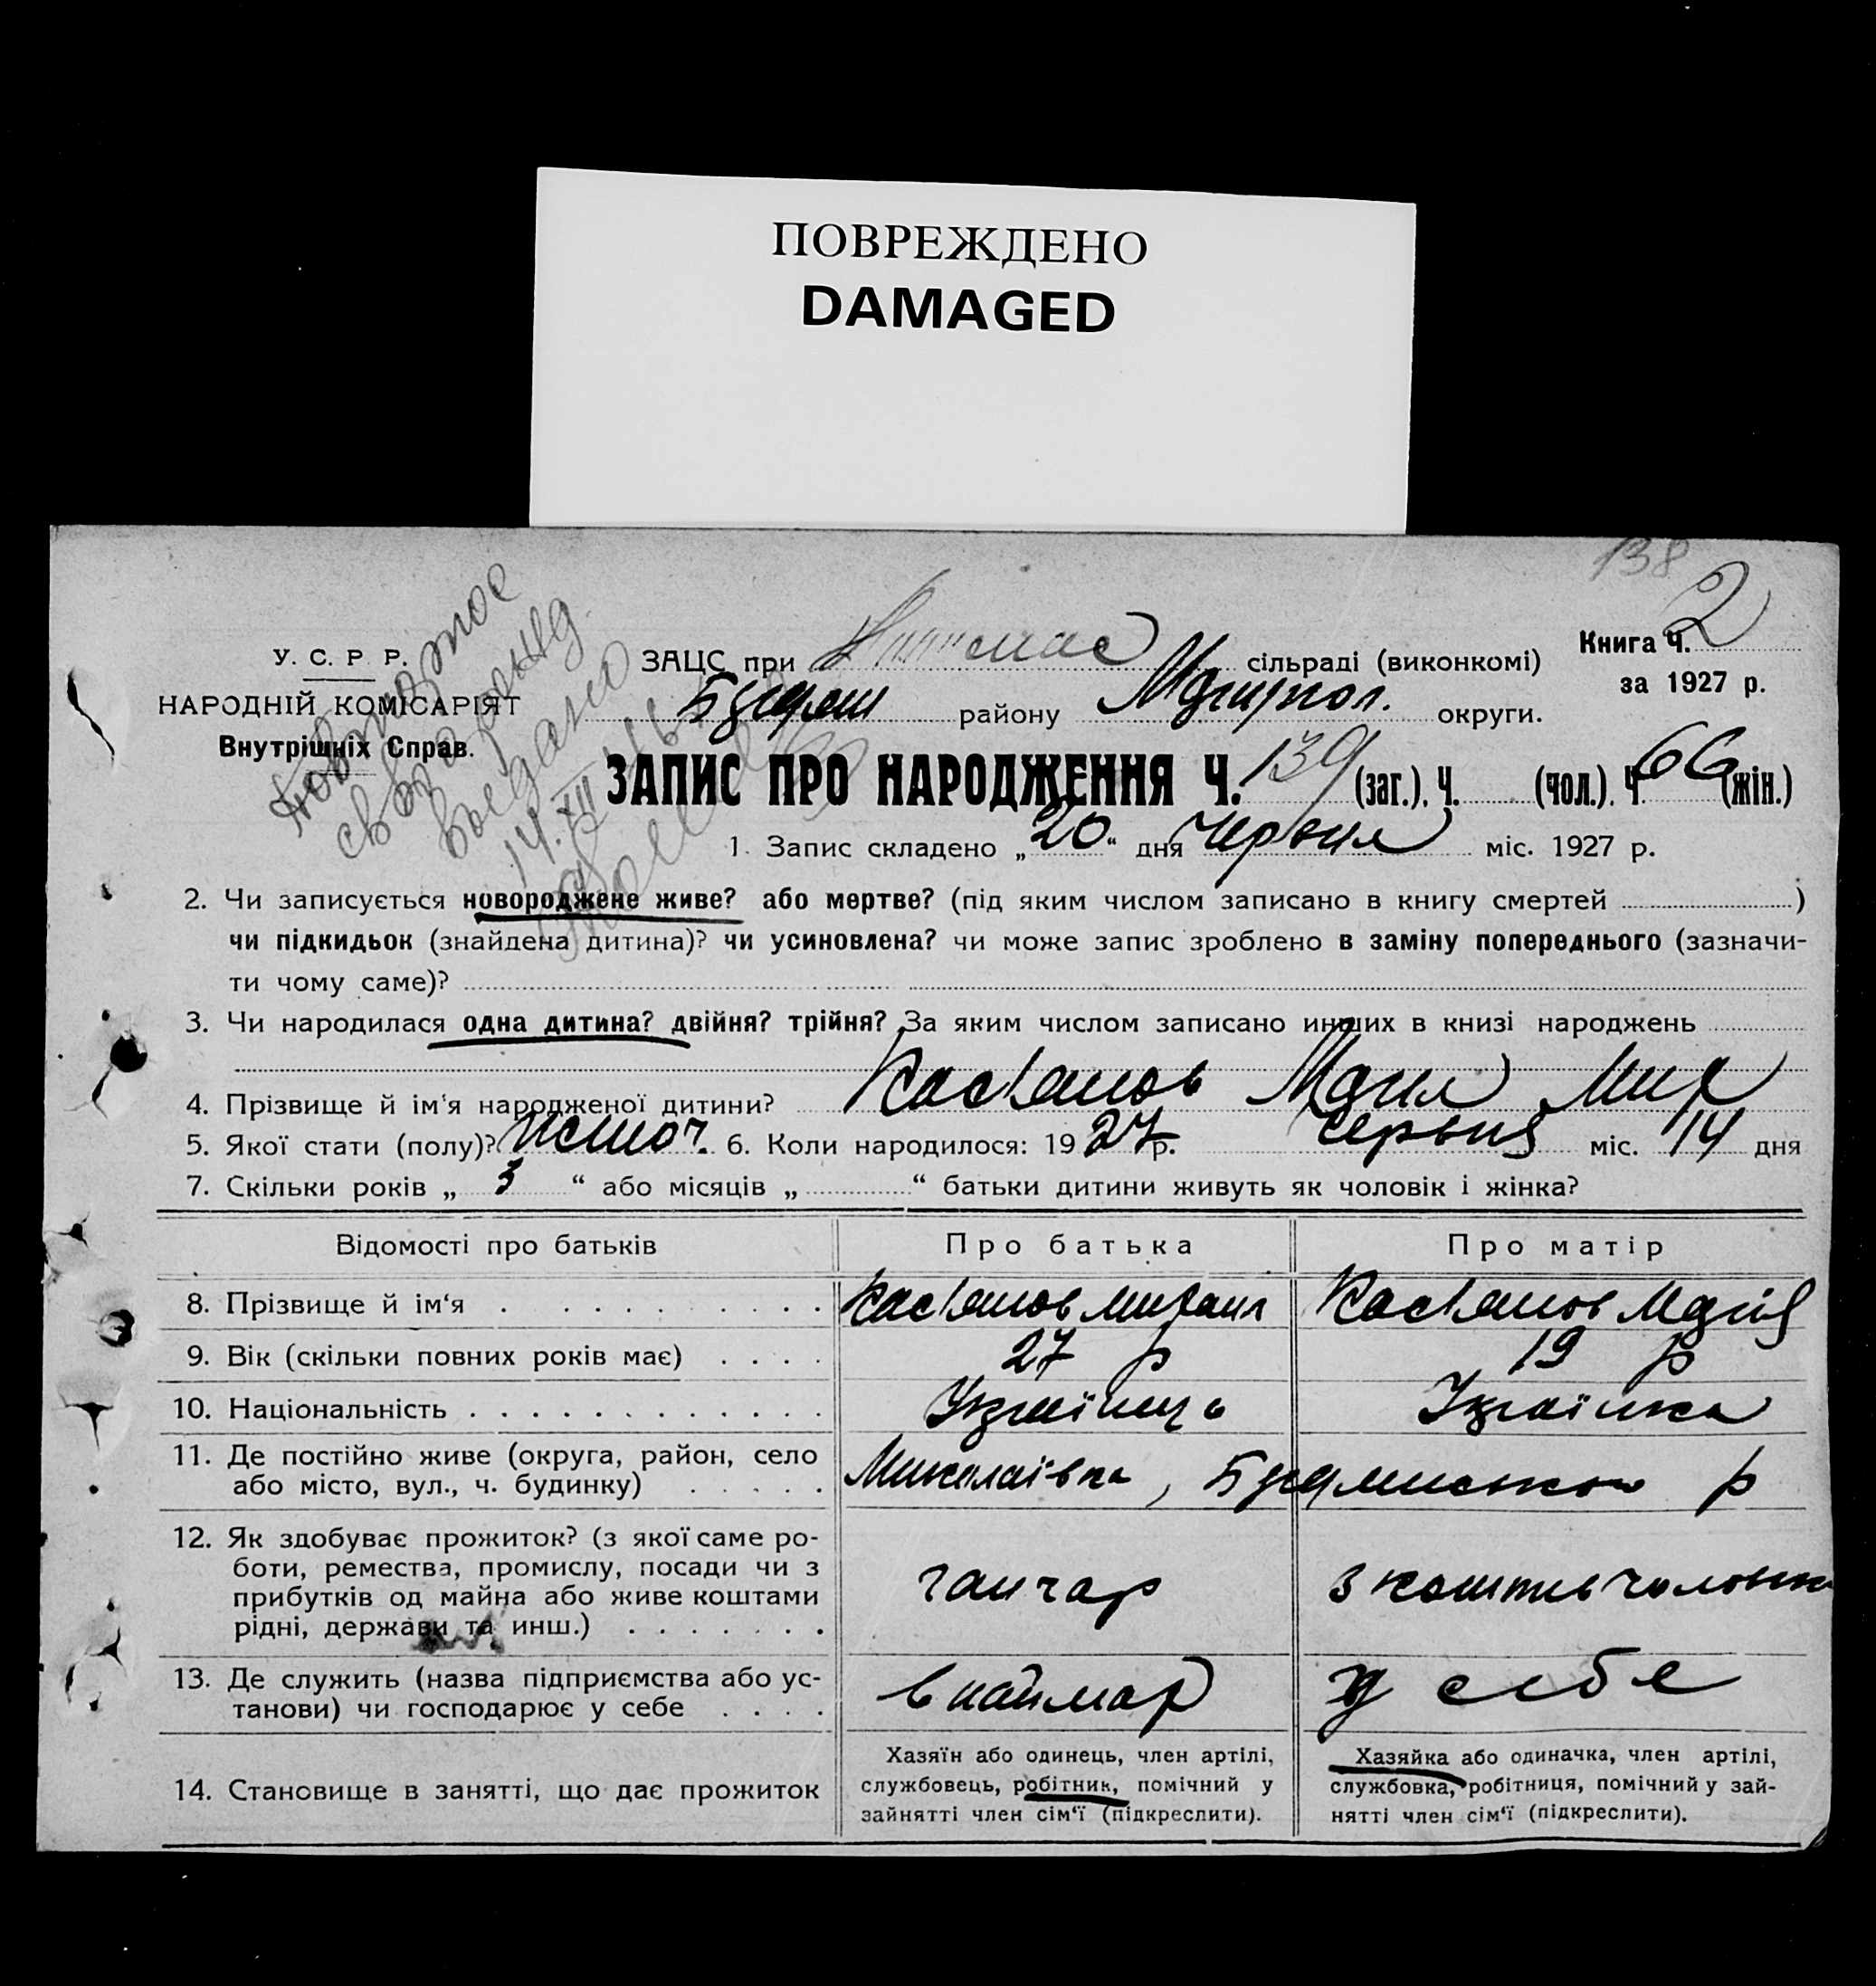 ПОВРЕЖДЕНО
DAMAGED
138
У. С. Р. Р.
НАРОДНІЙ КОМІСАРІЯТ
Внутрішніх Справ.
Повторное
св во о рожд.
выдано
14. XII
ЗАЦС при сільраді (виконкомі)
Книга Ч. 2
за 1927 р.
району Маріюпол. округи.
ЗАПИС ПРО НАРОДЖЕННЯ Ч. 139 (заг.). Ч. (чол.). Ч. 66 (жін.)
1. Запис складено „ 20 “ дня Червня міс. 1927 р.
2. Чи записується новороджене живе? або мертве? (під яким числом записано в книгу смертей )
чи підкидьок (знайдена дитина)? чи усиновлена? чи може запис зроблено в заміну попереднього (зазначи-
ти чому саме)?
3. Чи народилася одна дитина? двійня? трійня? За яким числом записано инших в книзі народжень
4. Прізвище й ім‘я народженої дитини? Касʼянов Марія Мих
5. Якої стати (полу)? жіноч. 6. Коли народилося: 19 27 р. червня міс. 14 дня
7. Скільки років „ 3 “ або місяців „ “ батьки дитини живуть як чоловік і жінка?
Відомості про батьків Про батька Про матір
8. Прізвище й ім‘я Касʼянов Михаил Касʼянов Марія
9. Вік (скільки повних років має) 27 р 19 р
10. Національність Українець Українка
11. Де постійно живе (округа, район, село
або місто, вул., ч. будинку) Миколаївка, р
12. Як здобуває прожиток? (з якої саме ро-
боти, ремества, промислу, посади чи з
прибутків од майна або живе коштами
рідні, держави та инш.) ганчар з коштів чоловіка
13. Де служить (назва підприємства або ус-
танови) чи господарює у себе в наймах у себе
14. Становище в занятті, що дає прожиток
Хазяїн або одинець, член артілі,
службовець, робітник, помічний у
зайнятті член сім‘ї (підкреслити).
Хазяйка або одиначка, член артілі,
службовка, робітниця, помічний у зай-
нятті член сім‘ї (підкреслити).